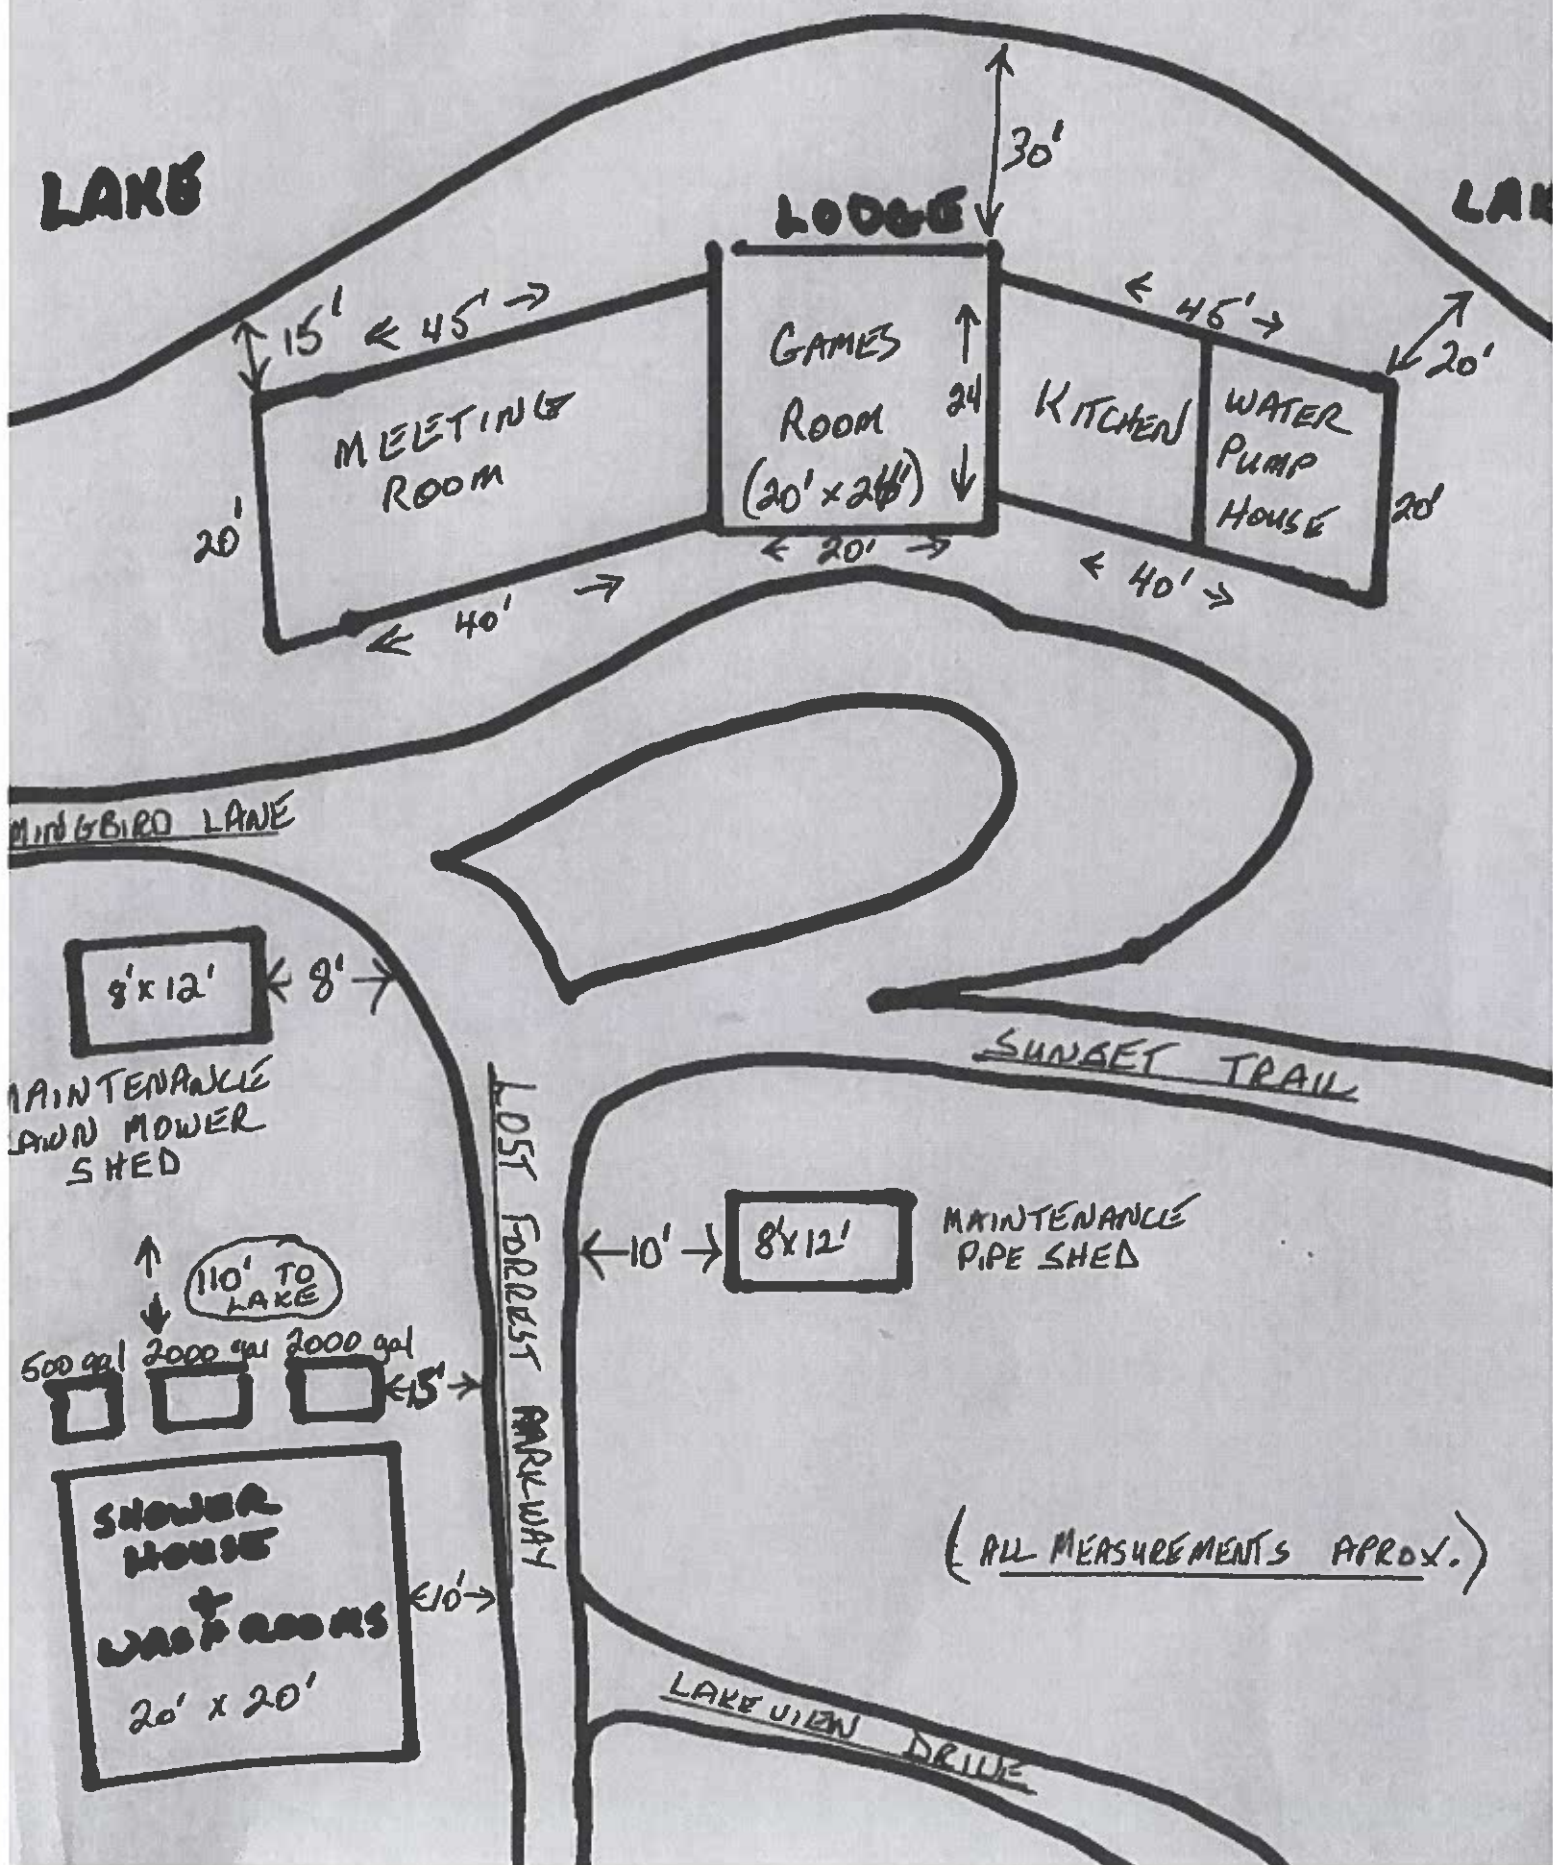 LAKE
30'
LODGE
LAK
15'
← 45' →
← 45' →
20'
GAMES
ROOM
(20' x 24')
24
MEETING
ROOM
KITCHEN
WATER
PUMP
HOUSE
20'
20'
← 20' →
← 40' →
← 40' →
MINGBIRD LANE
8' x 12'
8'
MAINTENANCE
LAWN MOWER
SHED
SUNSET TRAIL
LOST FORREST PARKWAY
10'
8' x 12'
MAINTENANCE
PIPE SHED
110' TO
LAKE
500 gal 2000 gal 2000 gal
15'
SHOWER
HOUSE
+
WASHROOMS
20' x 20'
10'
(ALL MEASUREMENTS APROX.)
LAKEVIEW DRIVE